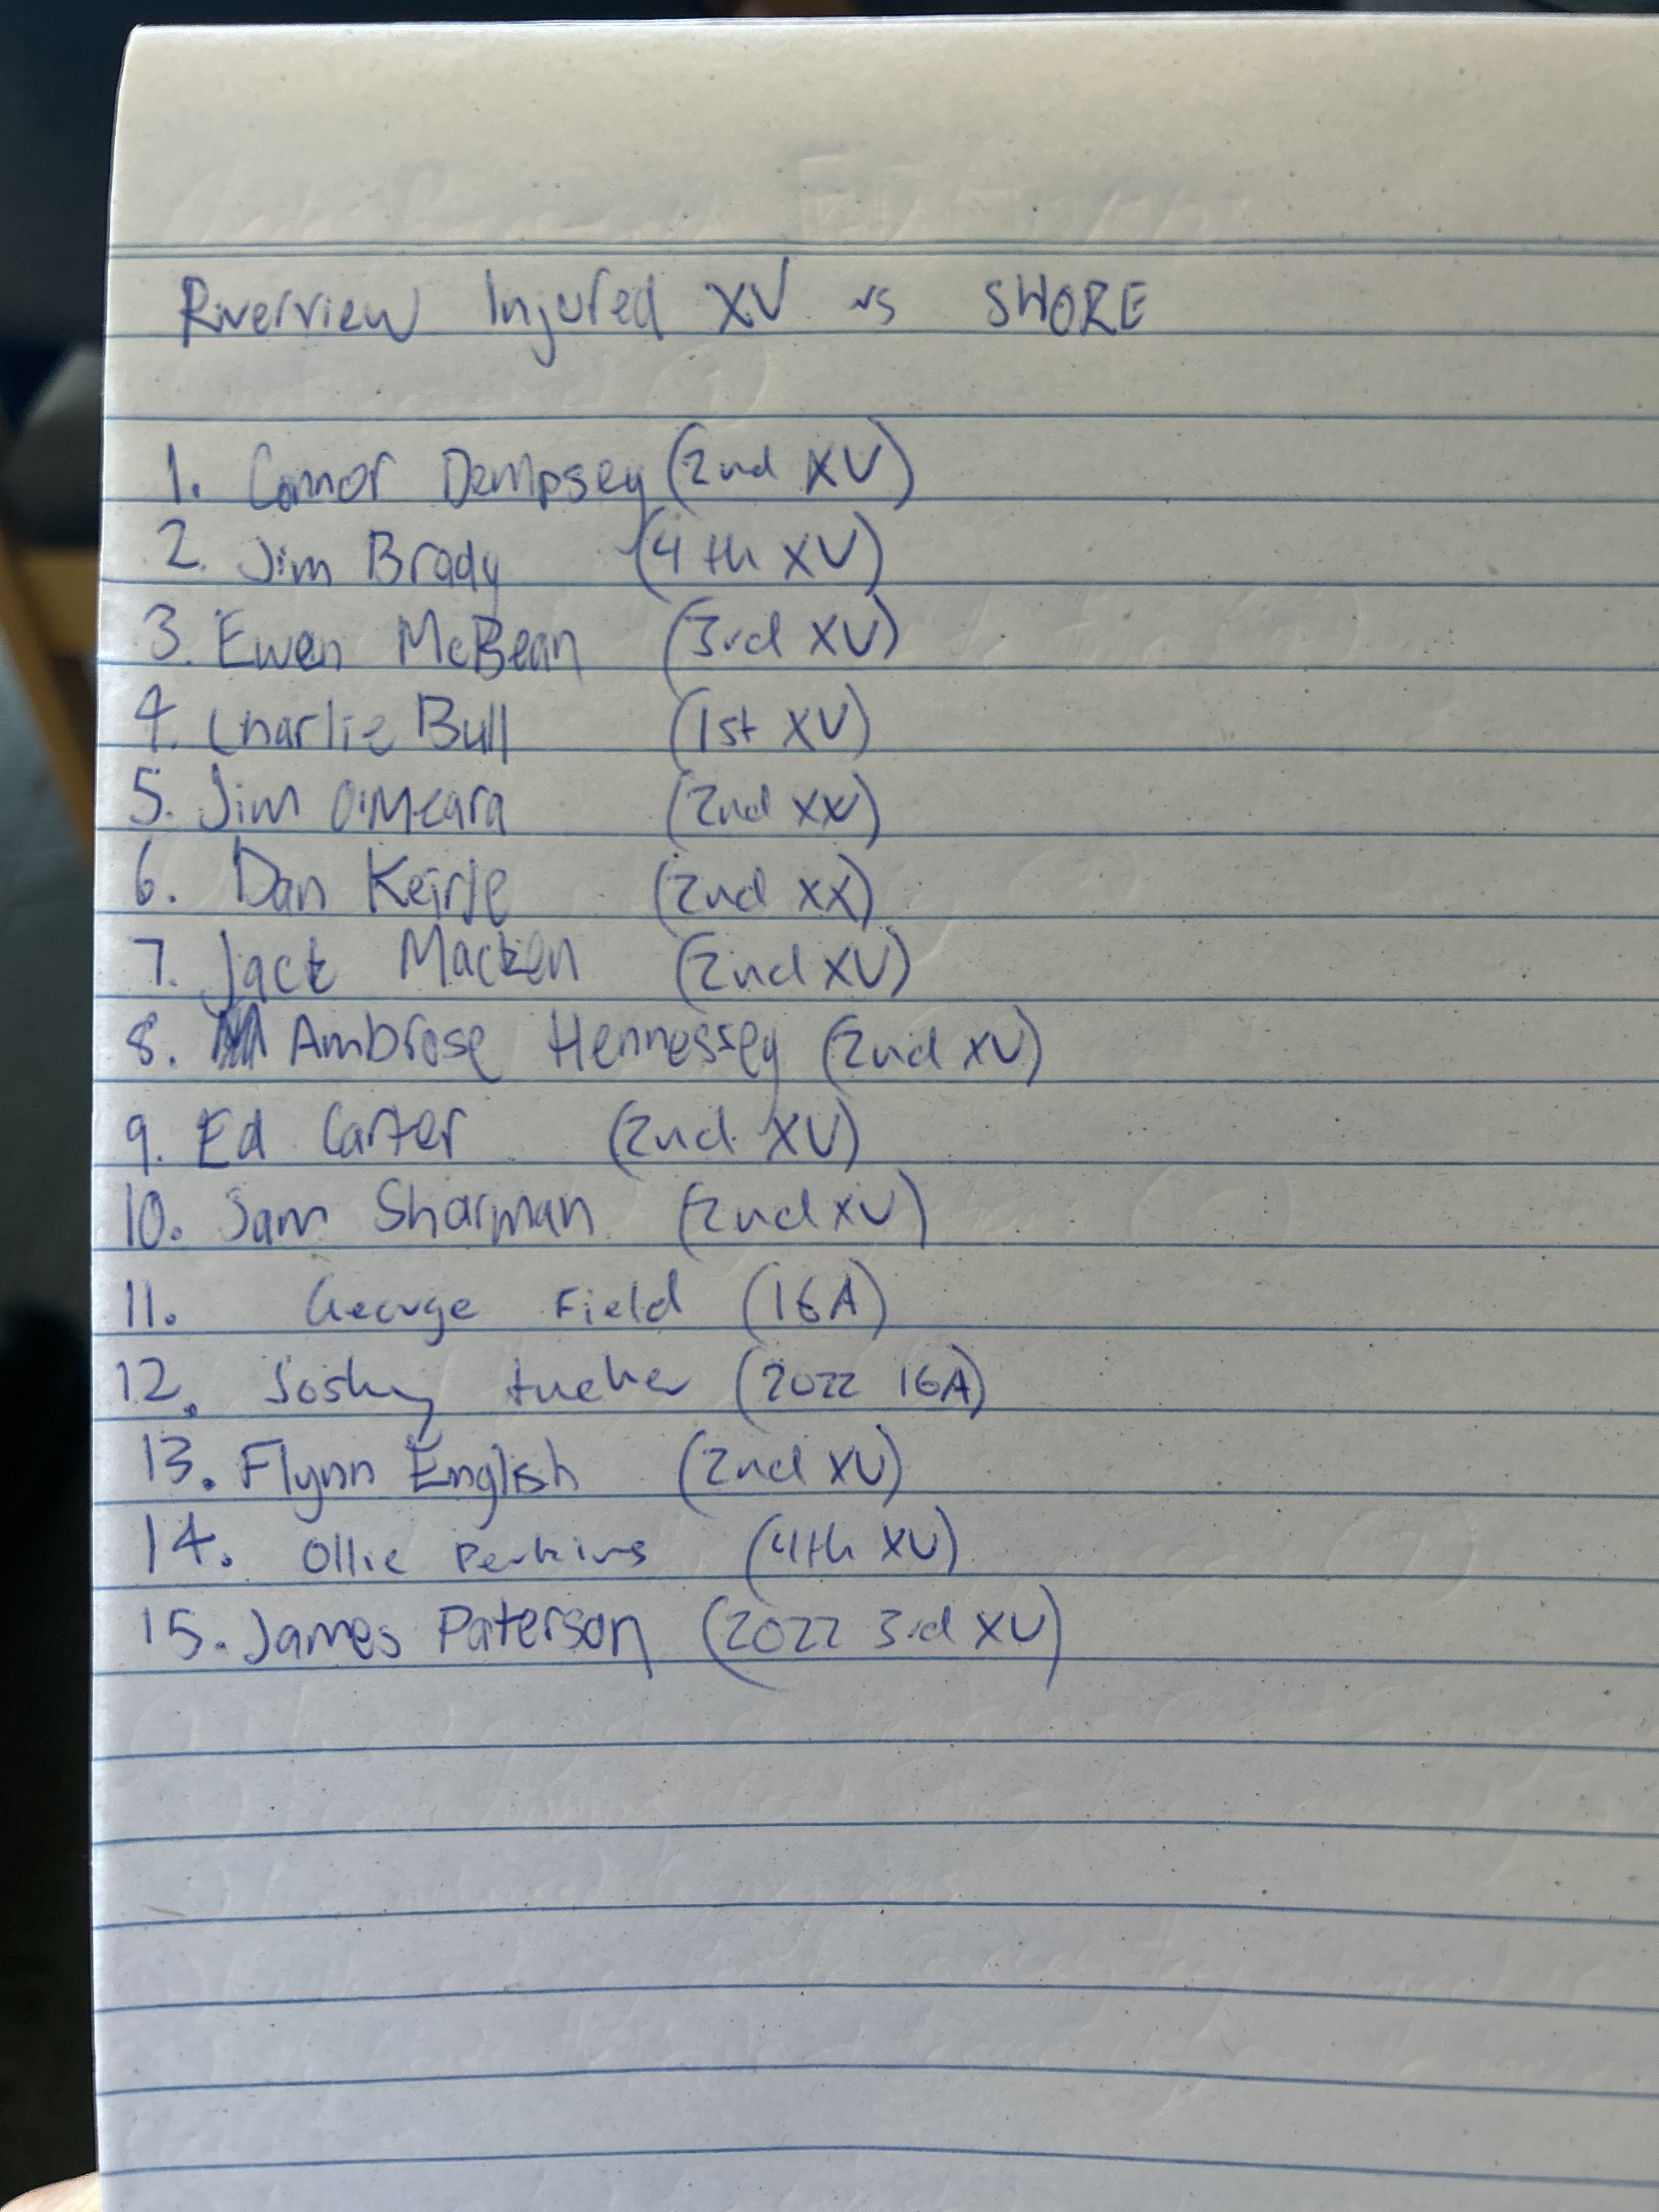 Riverview Injured XV vs SHORE
1. Connor Dempsey (2nd XV)
2. Jim Brady (4th XV)
3. Ewen McBean (3rd XV)
4. Charlie Bull (1st XV)
5. Jim O'Meara (2nd XV)
6. Dan Keirle (2nd XX)
7. Jack Macken (2nd XV)
8. Ambrose Hennessey (2nd XV)
9. Ed Carter (2nd XV)
10. Sam Sharman (2nd XV)
11. George Field (16A)
12. Joshy tucker (2022 16A)
13. Flynn English (2nd XV)
14. Ollie Perkins (4th XV)
15. James Paterson (2022 3rd XV)